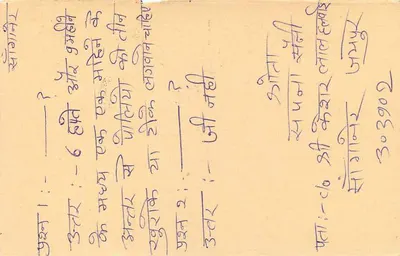 सांगानेर
प्रश्न 1:- ?
उत्तर :- 6 हफ्ते और 9 महीने
के मध्य एक एक महिने के
अन्तर से पोलियो की तीन
खुराके या टीके लगाने चाहिए
प्रश्न 2:- ?
उत्तर :- जी नहीं
श्रोता
सपना सैनी
पता:- c/o श्री केशर लाल
सांगानेर जयपुर
303902